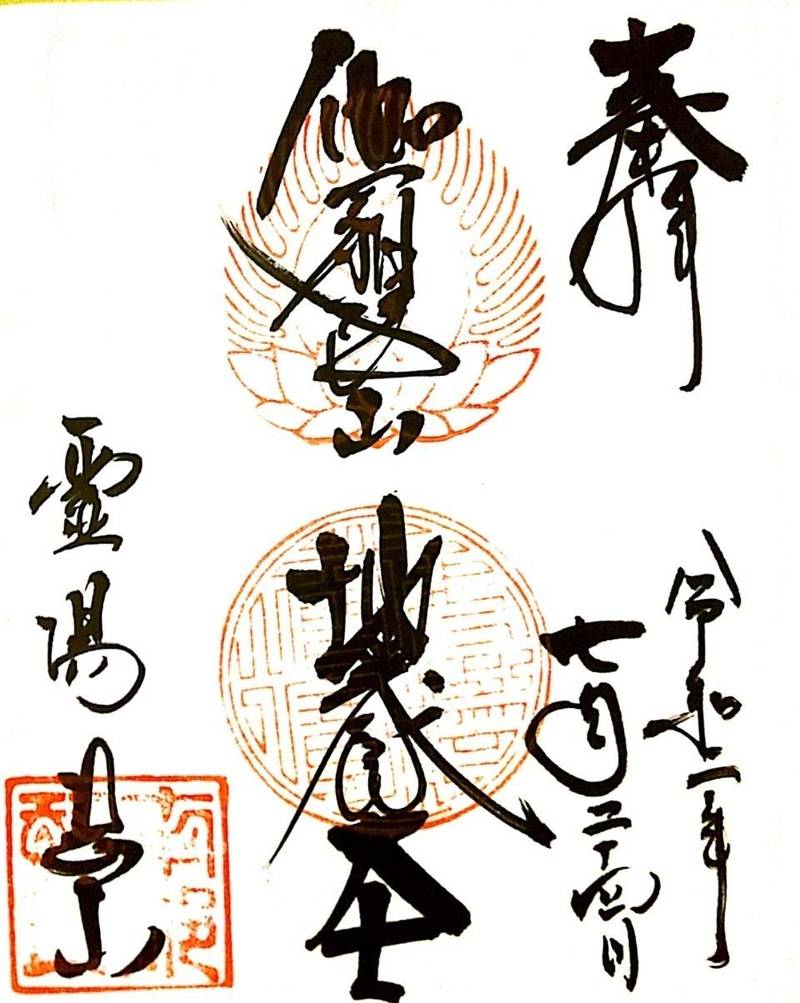 奉拝
令和二年
七月二十四日
伽羅陀山
地蔵大士
霊場
恐山